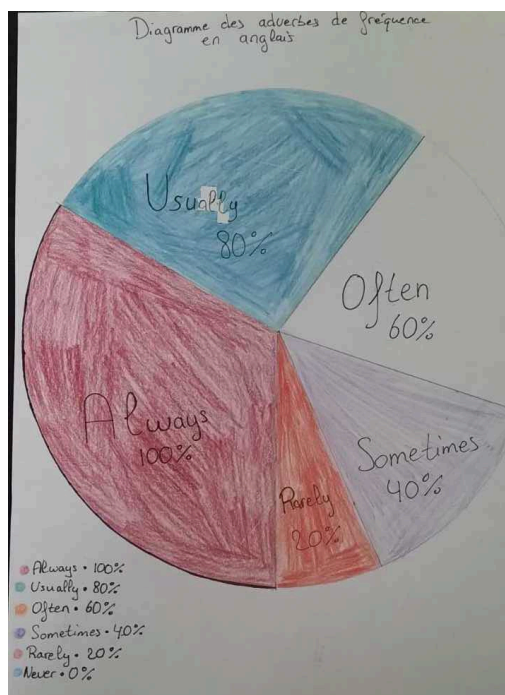 Diagramme des adverbes de fréquence
en anglais
Usually
80%
Often
60%
Always
100%
Sometimes
40%
Rarely
20%
Always • 100%
Usually • 80%
Often • 60%
Sometimes • 40%
Rarely • 20%
Never • 0%